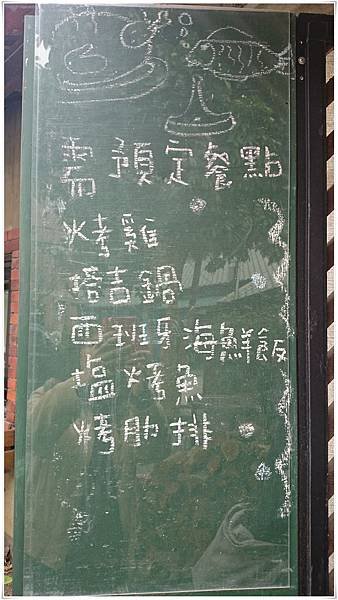 需預定餐點
烤雞
塔吉鍋
西班牙海鮮飯
塩烤魚
烤肋排